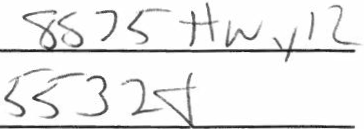 8575 Hwy 12
5532J